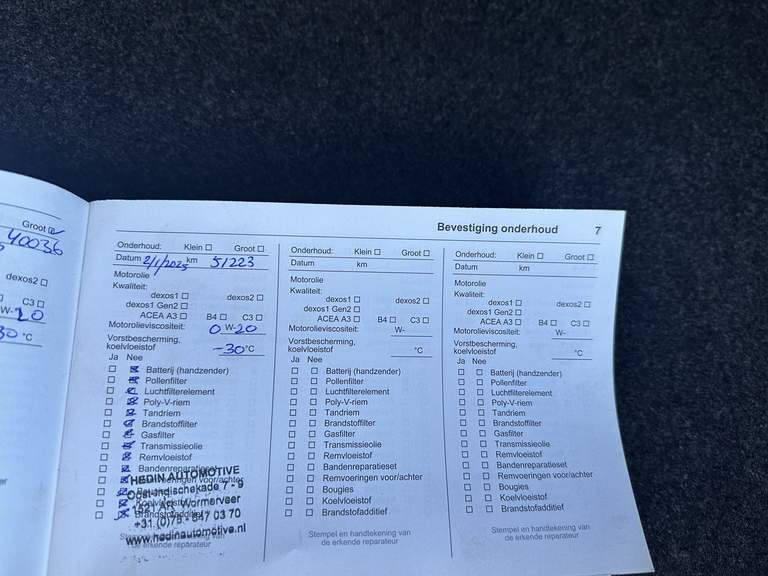 Groot
40036
dexos2
C3
W-20
30 °C
Bevestiging onderhoud 7
Onderhoud: Klein Groot
Datum 2/1/2025 km 51223
Motorolie
Kwaliteit:
dexos1 dexos2
dexos1 Gen2
ACEA A3 B4 C3
Motorolieviscositeit: 0 W-20
Vorstbescherming,
koelvloeistof -30 °C
Ja Nee
Batterij (handzender)
Pollenfilter
Luchtfilterelement
Poly-V-riem
Tandriem
Brandstoffilter
Gasfilter
Transmissieolie
Remvloeistof
Bandenreparatieset
Remvoeringen voor/achter
Koelvloeistof
Brandstofadditief
HEDIN AUTOMOTIVE
Oostindischekade 7 - 9
1521 AR Wormerveer
+31 (0)75 - 647 03 70
www.hedinautomotive.nl
de erkende reparateur
Onderhoud: Klein Groot
Datum km
Motorolie
Kwaliteit:
dexos1 dexos2
dexos1 Gen2
ACEA A3 B4 C3
Motorolieviscositeit: W-
Vorstbescherming,
koelvloeistof °C
Ja Nee
Batterij (handzender)
Pollenfilter
Luchtfilterelement
Poly-V-riem
Tandriem
Brandstoffilter
Gasfilter
Transmissieolie
Remvloeistof
Bandenreparatieset
Remvoeringen voor/achter
Bougies
Koelvloeistof
Brandstofadditief
Stempel en handtekening van
de erkende reparateur
Onderhoud: Klein Groot
Datum km
Motorolie
Kwaliteit:
dexos1 dexos2
dexos1 Gen2
ACEA A3 B4 C3
Motorolieviscositeit: W-
Vorstbescherming,
koelvloeistof °C
Ja Nee
Batterij (handzender)
Pollenfilter
Luchtfilterelement
Poly-V-riem
Tandriem
Brandstoffilter
Gasfilter
Transmissieolie
Remvloeistof
Bandenreparatieset
Remvoeringen voor/achter
Bougies
Koelvloeistof
Brandstofadditief
Stempel en handtekening van
de erkende reparateur